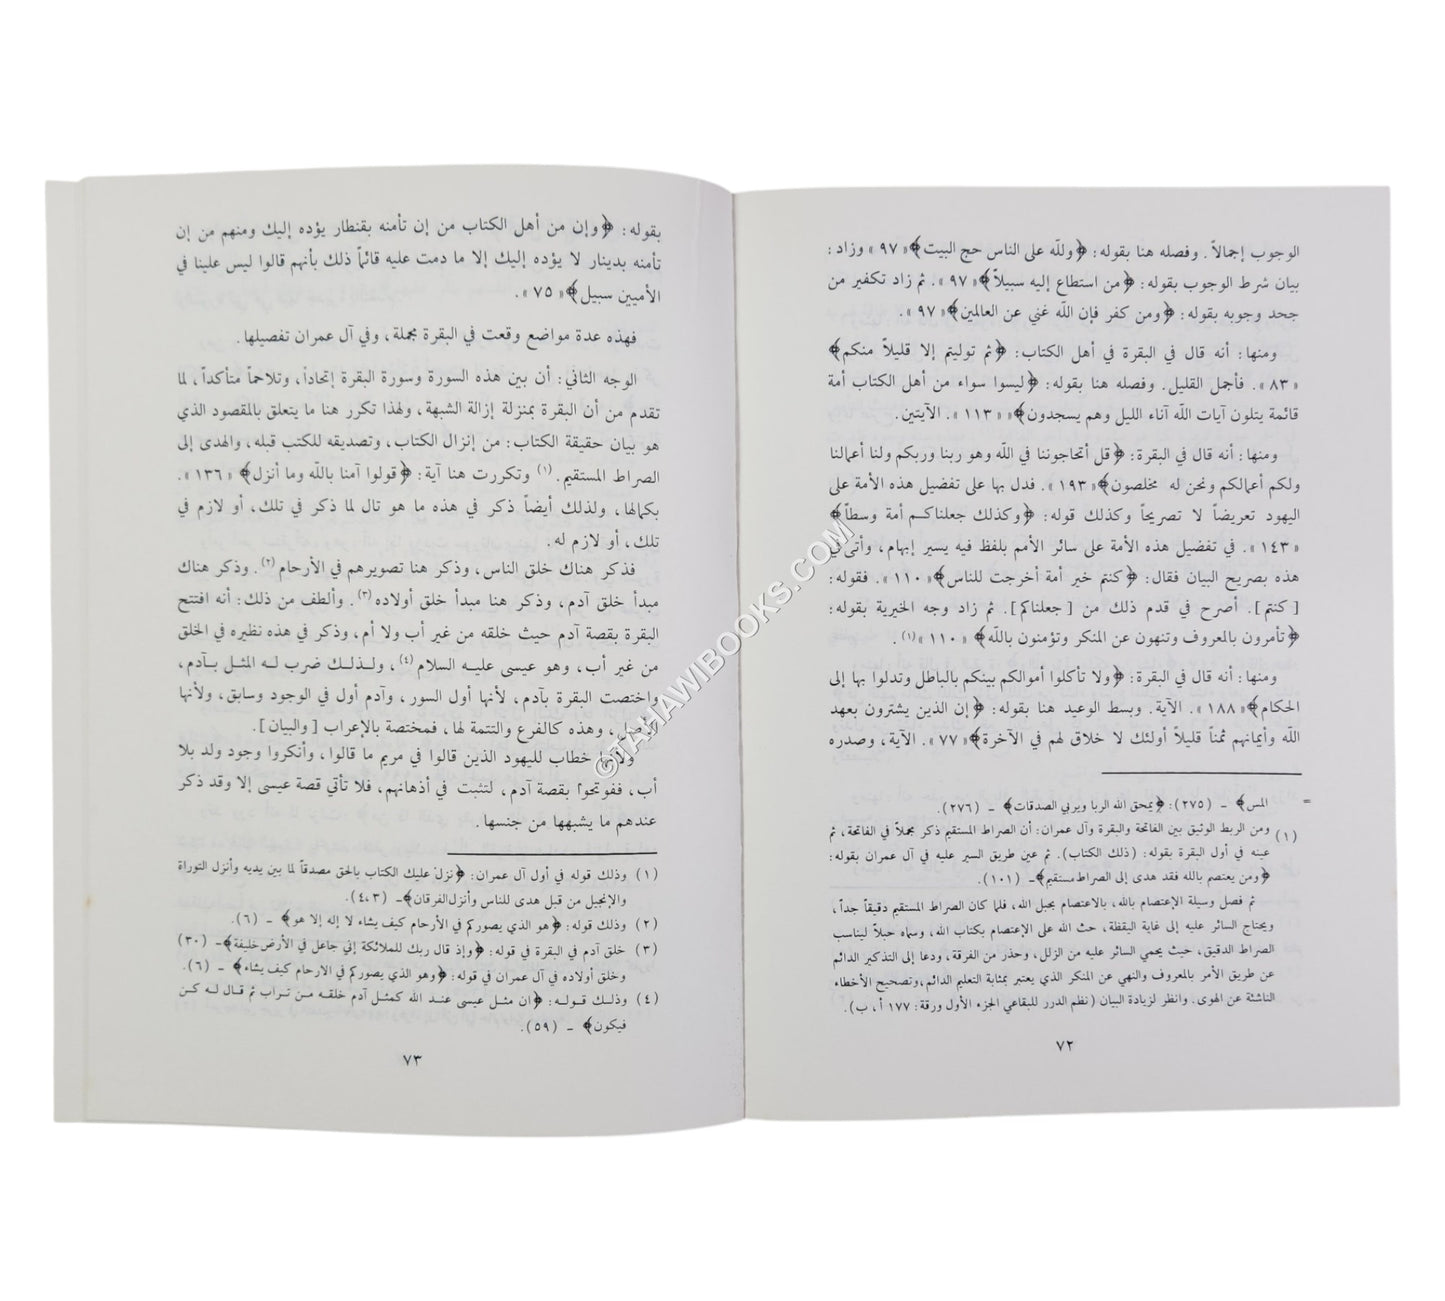 الوجوب إجمالاً. وفصله هنا بقوله: ﴿ولله على الناس حج البيت﴾«٩٧» وزاد:
بيان شرط الوجوب بقوله: ﴿من استطاع إليه سبيلاً﴾«٩٧». ثم زاد تكفير من
جحد وجوبه بقوله: ﴿ومن كفر فإن الله غني عن العالمين﴾«٩٧».
ومنها: أنه قال في البقرة في أهل الكتاب: ﴿ثم توليتم إلا قليلاً منكم﴾
«٨٣». فأجمل القليل. وفصله هنا بقوله: ﴿ليسوا سواء من أهل الكتاب أمة
قائمة يتلون آيات الله آناء الليل وهم يسجدون﴾«١١٣». الآيتين.
ومنها: أنه قال في البقرة: ﴿قل أتحاجوننا في الله وهو ربنا وربكم ولنا أعمالنا
ولكم أعمالكم ونحن له مخلصون﴾«١٩٣». فدل بها على تفضيل هذه الأمة على
اليهود تعريضاً لا تصريحاً وكذلك قوله: ﴿وكذلك جعلناكم أمة وسطاً﴾
«١٤٣». في تفضيل هذه الأمة على سائر الأمم بلفظ فيه يسير إبهام، وأتى في
هذه بصريح البيان فقال: ﴿كنتم خير أمة أخرجت للناس﴾«١١٠». فقوله:
[كنتم]. أصرح في قدم ذلك من [جعلناكم]. ثم زاد وجه الخيرية بقوله:
﴿تأمرون بالمعروف وتنهون عن المنكر وتؤمنون بالله﴾ «١١٠»(١).
ومنها: أنه قال في البقرة: ﴿ولا تأكلوا أموالكم بينكم بالباطل وتدلوا بها إلى
الحكام﴾«١٨٨». الآية. وبسط الوعيد هنا بقوله: ﴿إن الذين يشترون بعهد
الله وأيمانهم ثمناً قليلاً أولئك لا خلاق لهم في الآخرة﴾«٧٧». الآية، وصدره
= المس﴾ - (٢٧٥): ﴿يمحق الله الربا ويربي الصدقات﴾ - (٢٧٦).
(١) ومن الربط الوثيق بين الفاتحة والبقرة وآل عمران: أن الصراط المستقيم ذكر مجملاً في الفاتحة، ثم
عينه في أول البقرة بقوله: (ذلك الكتاب). ثم عين طريق السير عليه في آل عمران بقوله:
﴿ومن يعتصم بالله فقد هدى إلى الصراط مستقيم﴾- (١٠١).
ثم فصل وسيلة الإعتصام بالله، بالاعتصام بحبل الله، فلما كان الصراط المستقيم دقيقاً جداً،
ويحتاج السائر عليه إلى غاية اليقظة، حث الله على الإعتصام بكتاب الله، وسماه حبلاً ليناسب
الصراط الدقيق، حيث يحمي السائر عليه من الزلل، وحذر من الفرقة، ودعا إلى التذكير الدائم
عن طريق الأمر بالمعروف والنهي عن المنكر الذي يعتبر بمثابة التعليم الدائم، وتصحيح الأخطاء
الناشئة عن الهوى. وانظر لزيادة البيان (نظم الدرر للبقاعي الجزء الأول ورقة: ١٧٧ أ، ب).
٧٢
بقوله: ﴿وإن من أهل الكتاب من إن تأمنه بقنطار يؤده إليك ومنهم من إن
تأمنه بدينار لا يؤده إليك إلا ما دمت عليه قائماً ذلك بأنهم قالوا ليس علينا في
الأميين سبيل﴾«٧٥».
فهذه عدة مواضع وقعت في البقرة مجملة، وفي آل عمران تفصيلها.
الوجه الثاني: أن بين هذه السورة وسورة البقرة إتحاداً، وتلاحماً متأكداً، لما
تقدم من أن البقرة بمنزلة إزالة الشبهة، ولهذا تكرر هنا ما يتعلق بالمقصود الذي
هو بيان حقيقة الكتاب: من إنزال الكتاب، وتصديقه للكتب قبله، والهدى إلى
الصراط المستقيم. (١) وتكررت هنا آية: ﴿قولوا آمنا بالله وما أنزل﴾ «١٣٦».
بكمالها، ولذلك أيضاً ذكر في هذه ما هو تال لما ذكر في تلك، أو لازم في
تلك، أو لازم له.
فذكر هناك خلق الناس، وذكر هنا تصويرهم في الأرحام(٢). وذكر هناك
مبدأ خلق آدم، وذكر هنا مبدأ خلق أولاده(٣). وألطف من ذلك: أنه افتتح
البقرة بقصة آدم حيث خلقه من غير أب ولا أم، وذكر في هذه نظيره في الخلق
من غير أب، وهو عيسى عليه السلام(٤)، ولذلك ضرب له المثل بآدم،
واختصت البقرة بآدم، لأنها أول السور، وآدم أول في الوجود وسابق، ولأنها
الأصل، وهذه كالفرع والتتمة لها، فمختصة بالإعراب [والبيان].
ولأنها خطاب لليهود الذين قالوا في مريم ما قالوا، وأنكروا وجود ولد بلا
أب، ففوتحوا بقصة آدم، لتثبت في أذهانهم، فلا تأتي قصة عيسى إلا وقد ذكر
عندهم ما يشبهها من جنسها.
(١) وذلك قوله في أول آل عمران: ﴿نزل عليك الكتاب بالحق مصدقاً لما بين يديه وأنزل التوراة
والإنجيل من قبل هدى للناس وأنزل الفرقان﴾- (٤،٣).
(٢) وذلك قوله: ﴿هو الذي يصوركم في الأرحام كيف يشاء لا إله إلا هو﴾ - (٦).
(٣) خلق آدم في البقرة في قوله: ﴿وإذ قال ربك للملائكة إني جاعل في الأرض خليفة﴾- (٣٠)
وخلق أولاده في آل عمران في قوله: ﴿وهو الذي يصوركم في الارحام كيف يشاء﴾ - (٦).
(٤) وذلك قوله: ﴿ان مثل عيسى عند الله كمثل آدم خلقه من تراب ثم قال له كن
فيكون﴾ - (٥٩).
٧٣
©TAHAWIBOOKS.COM